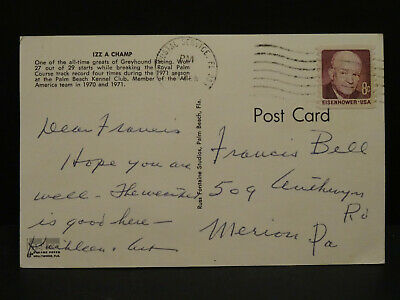 IZZ A CHAMP
One of the all-time greats of Greyhound Racing. Won
27 out of 29 starts while breaking the Royal Palm
Course track record four times during the 1971 season
at the Palm Beach Kennel Club. Member of the All-
America team in 1970 and 1971.
PM
8c
EISENHOWER·USA
Post Card
Russ Fontaine Studios, Palm Beach, Fla.
Dear Francis
Hope you are
well - The weather
is good here -
Kathleen
HOLLYWOOD, FLA.
Francis Bell
509
Rd
Merion Pa